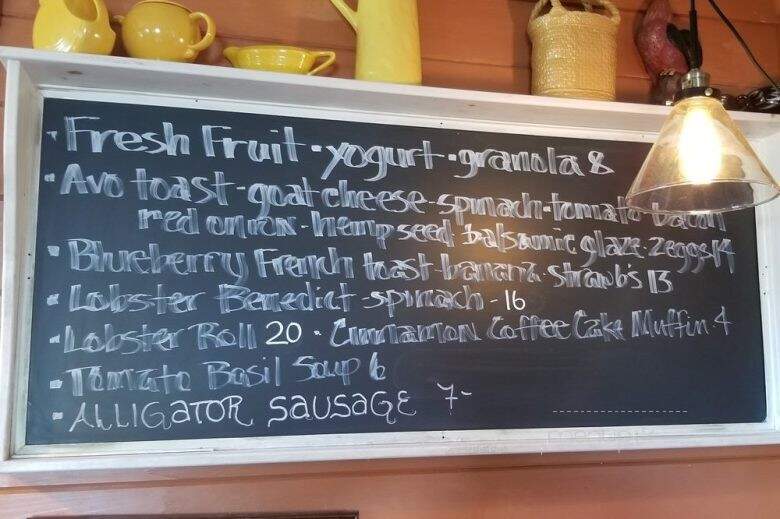 Fresh Fruit · yogurt · granola 8
Avo toast - goat cheese - spinach - tomato - bacon
red onion - hemp seed balsamic glaze 2 eggs 14
Blueberry French toast - banana - straub's 13
Lobster Benedict - spinach - 16
Lobster Roll 20 · Cinnamon Coffee Cake Muffin 4
Tomato Basil Soup 6
ALLIGATOR SAUSAGE 7-